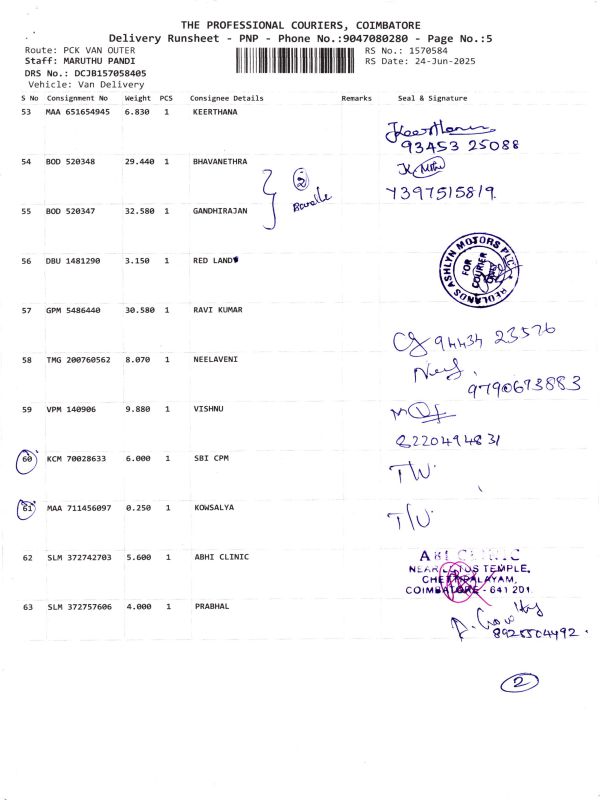 THE PROFESSIONAL COURIERS, COIMBATORE
Delivery Runsheet - PNP - Phone No.:9047080280 - Page No.:5
Route: PCK VAN OUTER RS No.: 1570584
Staff: MARUTHU PANDI RS Date: 24-Jun-2025
DRS No.: DCJB157058405
Vehicle: Van Delivery
S No Consignment No Weight PCS Consignee Details Remarks Seal & Signature
53 MAA 651654945 6.830 1 KEERTHANA
Keerthana
93453 25088
54 BOD 520348 29.440 1 BHAVANETHRA
2
7397515819
55 BOD 520347 32.580 1 GANDHIRAJAN
56 DBU 1481290 3.150 1 RED LAND
REDLANDS ASHLYN MOTORS PLC
FOR COURIER ONLY
57 GPM 5486440 30.580 1 RAVI KUMAR
94434 23576
58 TMG 200760562 8.070 1 NEELAVENI
9790673883
59 VPM 140906 9.880 1 VISHNU
8220494831
60 KCM 70028633 6.000 1 SBI CPM
61 MAA 711456097 0.250 1 KOWSALYA
62 SLM 372742703 5.600 1 ABHI CLINIC
ABI CLINIC
NEAR LOTUS TEMPLE,
CHETTIPALAYAM,
COIMBATORE - 641 201.
63 SLM 372757606 4.000 1 PRABHAL
8925504492.
2